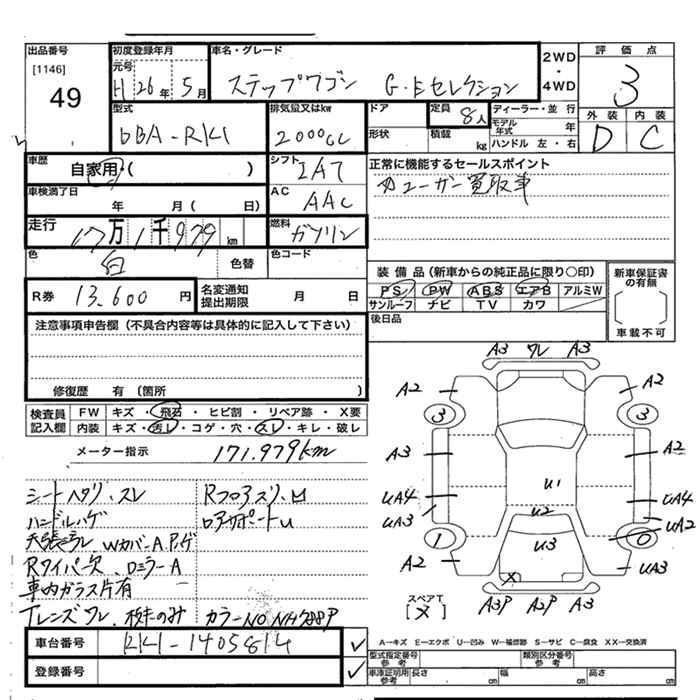 出品番号
[1146]
49
初度登録年月
元号
H 26年 5月
車名・グレード
ステップワゴン G・Eセレクション
2WD
・
4WD
評価点
3
外装 内装
D C
型式
DBA-RK1
排気量又はkw
2000cc
ドア
形状
定員
8人
積載
kg
ディーラー・並行
モデル年式 年
ハンドル 左・右
車歴
自家用・( )
シフト
IAT
正常に機能するセールスポイント
ユーザー買取車
車検満了日
年 月( 日)
AC
AAC
走行
17万1千979km
燃料
ガソリン
色
白
色替
色コード
R券
13,600円
名変通知
提出期限
月 日
装備品(新車からの純正品に限り○印)
PS PW ABS エアB アルミW
サンルーフ ナビ TV カワ
新車保証書の有無
車載不可
後日品
注意事項申告欄(不具合内容等は具体的に記入して下さい)
修復歴 有(箇所 )
検査員記入欄
FW キズ・飛石・ヒビ割・リペア跡・X要
内装 キズ・汚レ・コゲ・穴・スレ・キレ・破レ
メーター指示 171,979km
シートヘタリ、スレ
ハンドルハゲ
天張ラレ WカバーA.P.ハゲ
Rワイパー欠、DミラーA
車内ガラス片有
Tレンズワレ、
カラーNO NH788P
Rフロアスリ、凹
ロアサポートU
A3 ワレ A3
A2 A2
3 3
A3 A2
UA4 U1 UA4
UA3 U2 UA2
1 U3 0
A2 UA3
X
A3P A2P A3
スペアT
[X]
車台番号
RK1-1405814
登録番号
A-キズ E-エクボ U-凹み W-補修跡 S-サビ C-腐食 XX-交換済
型式指定番号
参考
類別区分番号
参考
車庫証明用
参考
長さ cm
幅 cm
高さ cm